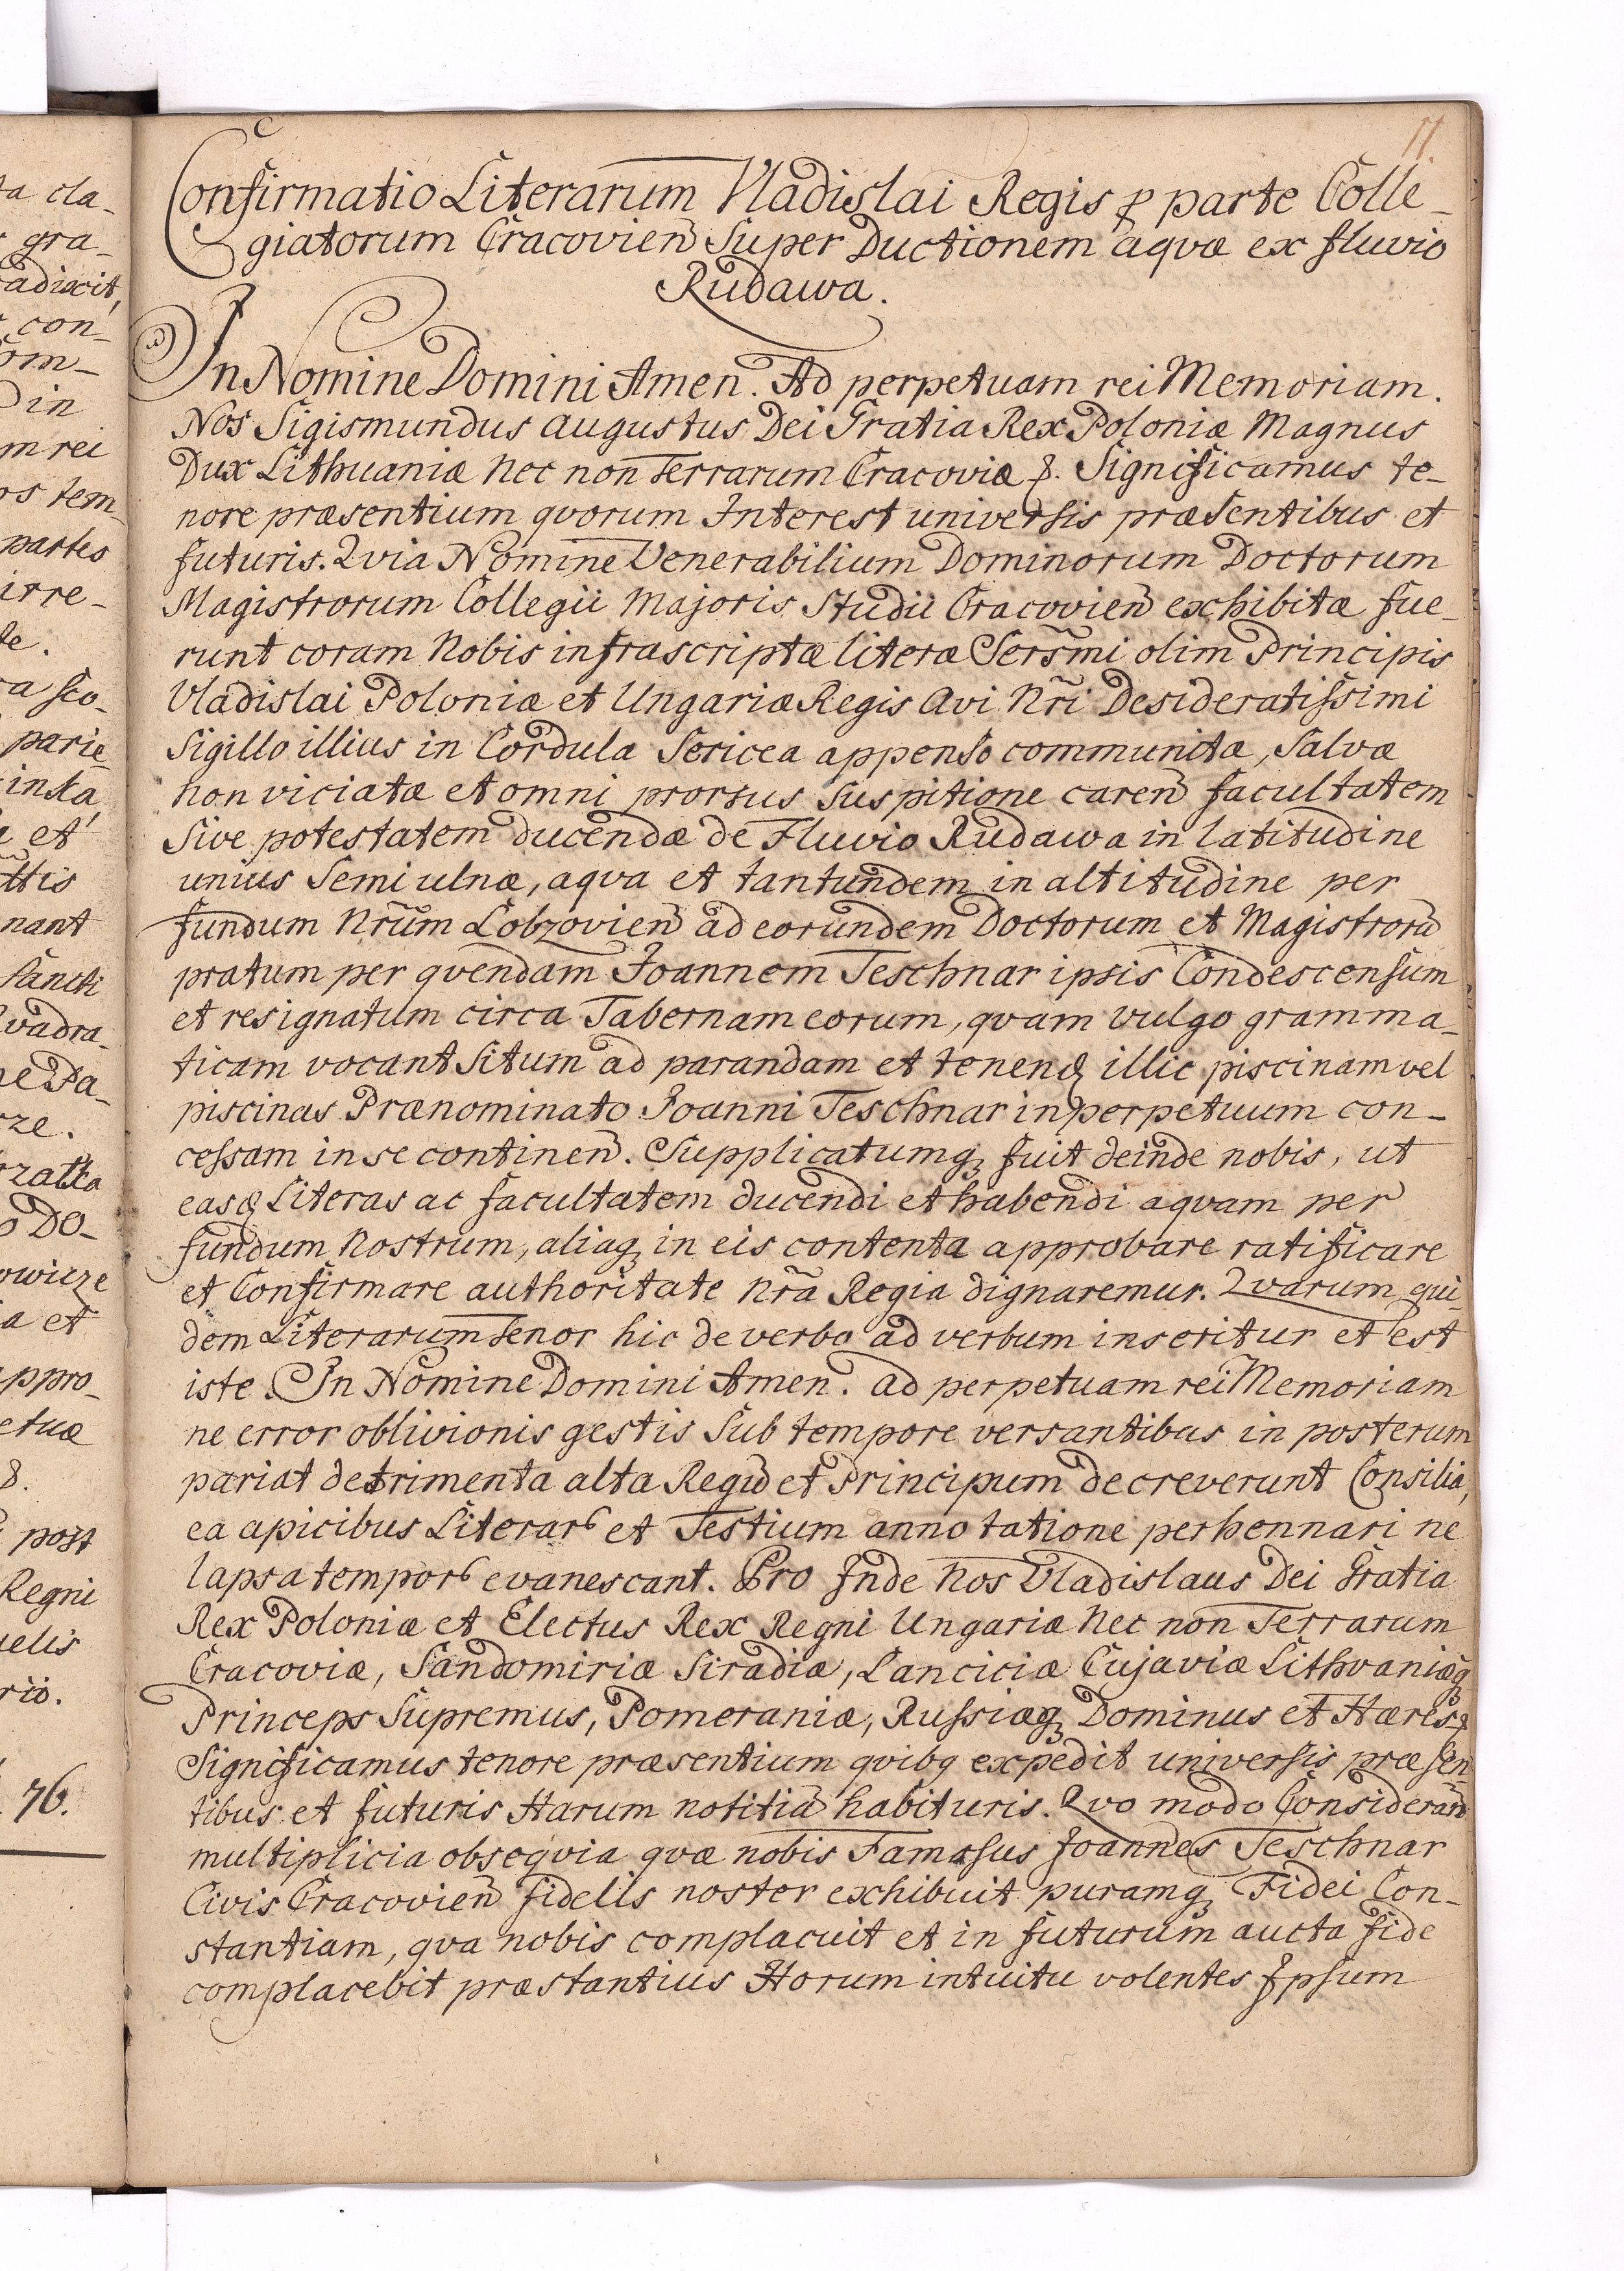 11.
Confirmatio Literarum Vladislai Regis p parte Colle_
giatorum Cracovień Super Ductionem aqvæ ex fluvio
Rudawa.
In Nomine Domini Amen. Ad perpetuam rei Memoriam.
Nos Sigismundus Augustus Dei Gratia Rex Poloniæ Magnus
Dux Lithuaniæ Nec non Terrarum Cracoviæ &. Significamus te_
nore præsentium qvorum Interest universis præsentibus et
futuris. Qvia Nomine Venerabilium Dominorum Doctorum
Magistrorum Collegii Majoris Studii Cracovień exchibitæ fue_
runt coram Nobis infrascriptæ literæ Sers̃mi olim Principis
Vladislai Poloniæ et Ungariæ Regis Avi Nr̃i Desideratissimi
Sigillo illius in Cordula Sericea appenso communitæ, Salvæ
non viciatæ et omni prorsus Suspitione careń facultatem
Sive potestatem ducendæ de Fluvio Rudawa in latitudine
unius Semi ulnæ, aqva et tantundem in altitudine per
fundum Nr̃um Lobzovień ad eorundem Doctorum et Magistrorū
pratum per qvendam Joannem Teschnar ipsis Condescensum
et resignatum circa Tabernam eorum, qvam vulgo gramma_
ticam vocant Situm ad parandam et tenend illic piscinam vel
piscinas Prænominato Joanni Teschnar in perpetuum con_
cessam in se contineń. Supplicatumq fuit deinde nobis, ut
easd Literas ac facultatem ducendi et habendi aqvam per
fundum Nostrum, aliaq in eis contenta approbare ratificare
et Confirmare authoritate Nr̃a Regia dignaremur. Qvarum qui_
dem Literarum tenor hic de verbo ad verbum inseritur et est
iste. In Nomine Domini Amen. ad perpetuam rei Memoriam
ne error oblivionis gestis Sub tempore versantibus in posterum
pariat detrimenta alta Regū et Principum decreverunt Consilia,
ea apicibus Literar et Testium annotatione perhennari ne
lapsa tempor evanescant. Pro Inde Nos Vladislaus Dei Gratia
Rex Poloniæ et Electus Rex Regni Ungariæ Nec non Terrarum
Cracoviæ, Sandomiriæ Siradiæ, Lanciciæ Cujaviæ Lithvaniæq
Princeps Supremus, Pomeraniæ, Russiæq Dominus et Hæres &
Significamus tenore præsentium qvibq expedit universis præsen_
tibus et futuris Harum notitiā habituris. Qvo modo Considerań
multiplicia obseqvia qvæ nobis Famosus Joannes Teschnar
Civis Cracovień fidelis noster exchibuit puramq Fidei Con_
stantiam, qva nobis complacuit et in futurum aucta fide
complacebit præstantius Horum intuitu volentes Ipsum
ta cla_
gra_
radixit,
con_
om_
in
m rei
os tem_
partes
irre_
te.
ra sco_
parie_
insta
et
ttis
nant
Sancti
Qvadra_
rze.
rzatka
DO_
owicze
a et
ppro_
etuæ
&.
post
Regni
elis
rio.
76.